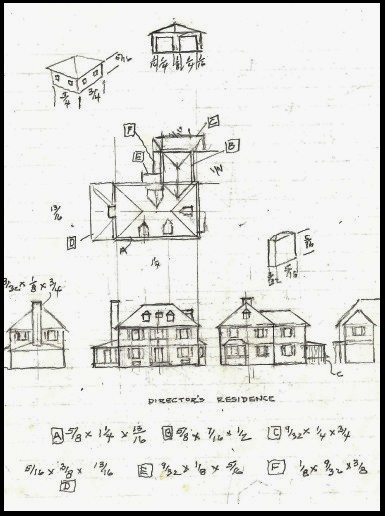 3/4 3/4
F
C
E
B
13/16
D
A
5/16
3/32 5/16
3/32 x 1/8 x 3/4
C
DIRECTOR'S RESIDENCE
A 5/8 x 1 1/4 x 13/16 B 5/8 x 7/16 x 1/2 C 9/32 x 1/4 x 3/4
5/16 x 5/8 x 13/16 E 9/32 x 1/8 x 5/16 F 1/8 x 9/32 x 3/8
D